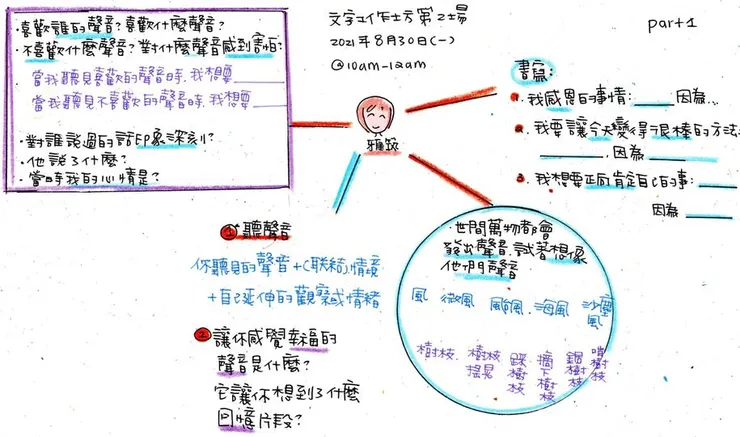 文字工作坊第2場
2021年8月30日(一)
@10am-12am
part1
喜歡誰的聲音?喜歡什麼聲音?
不喜歡什麼聲音?對什麼聲音感到害怕?
當我聽見喜歡的聲音時,我想要
當我聽見不喜歡的聲音時,我想要
對誰說過的話印象深刻?
他說了什麼?
當時我的心情是?
書寫:
1. 我感恩的事情:____因為...
2. 我要讓今天變得很棒的方法:
____,因為____
3. 我想要正向肯定自己的事:____
因為____
①聽聲音
你聽見的聲音+(聯結)情境
+自己延伸的觀察或情緒
②讓你感覺幸福的
聲音是什麼?
它讓你想到了什麼
回憶片段?
世間萬物都會
發出聲音.試著想像
他們聲音
風 微風 颱風.海風 沙塵風
樹枝. 樹枝搖晃 踩樹枝 摘下樹枝 鋸樹枝 啃樹枝